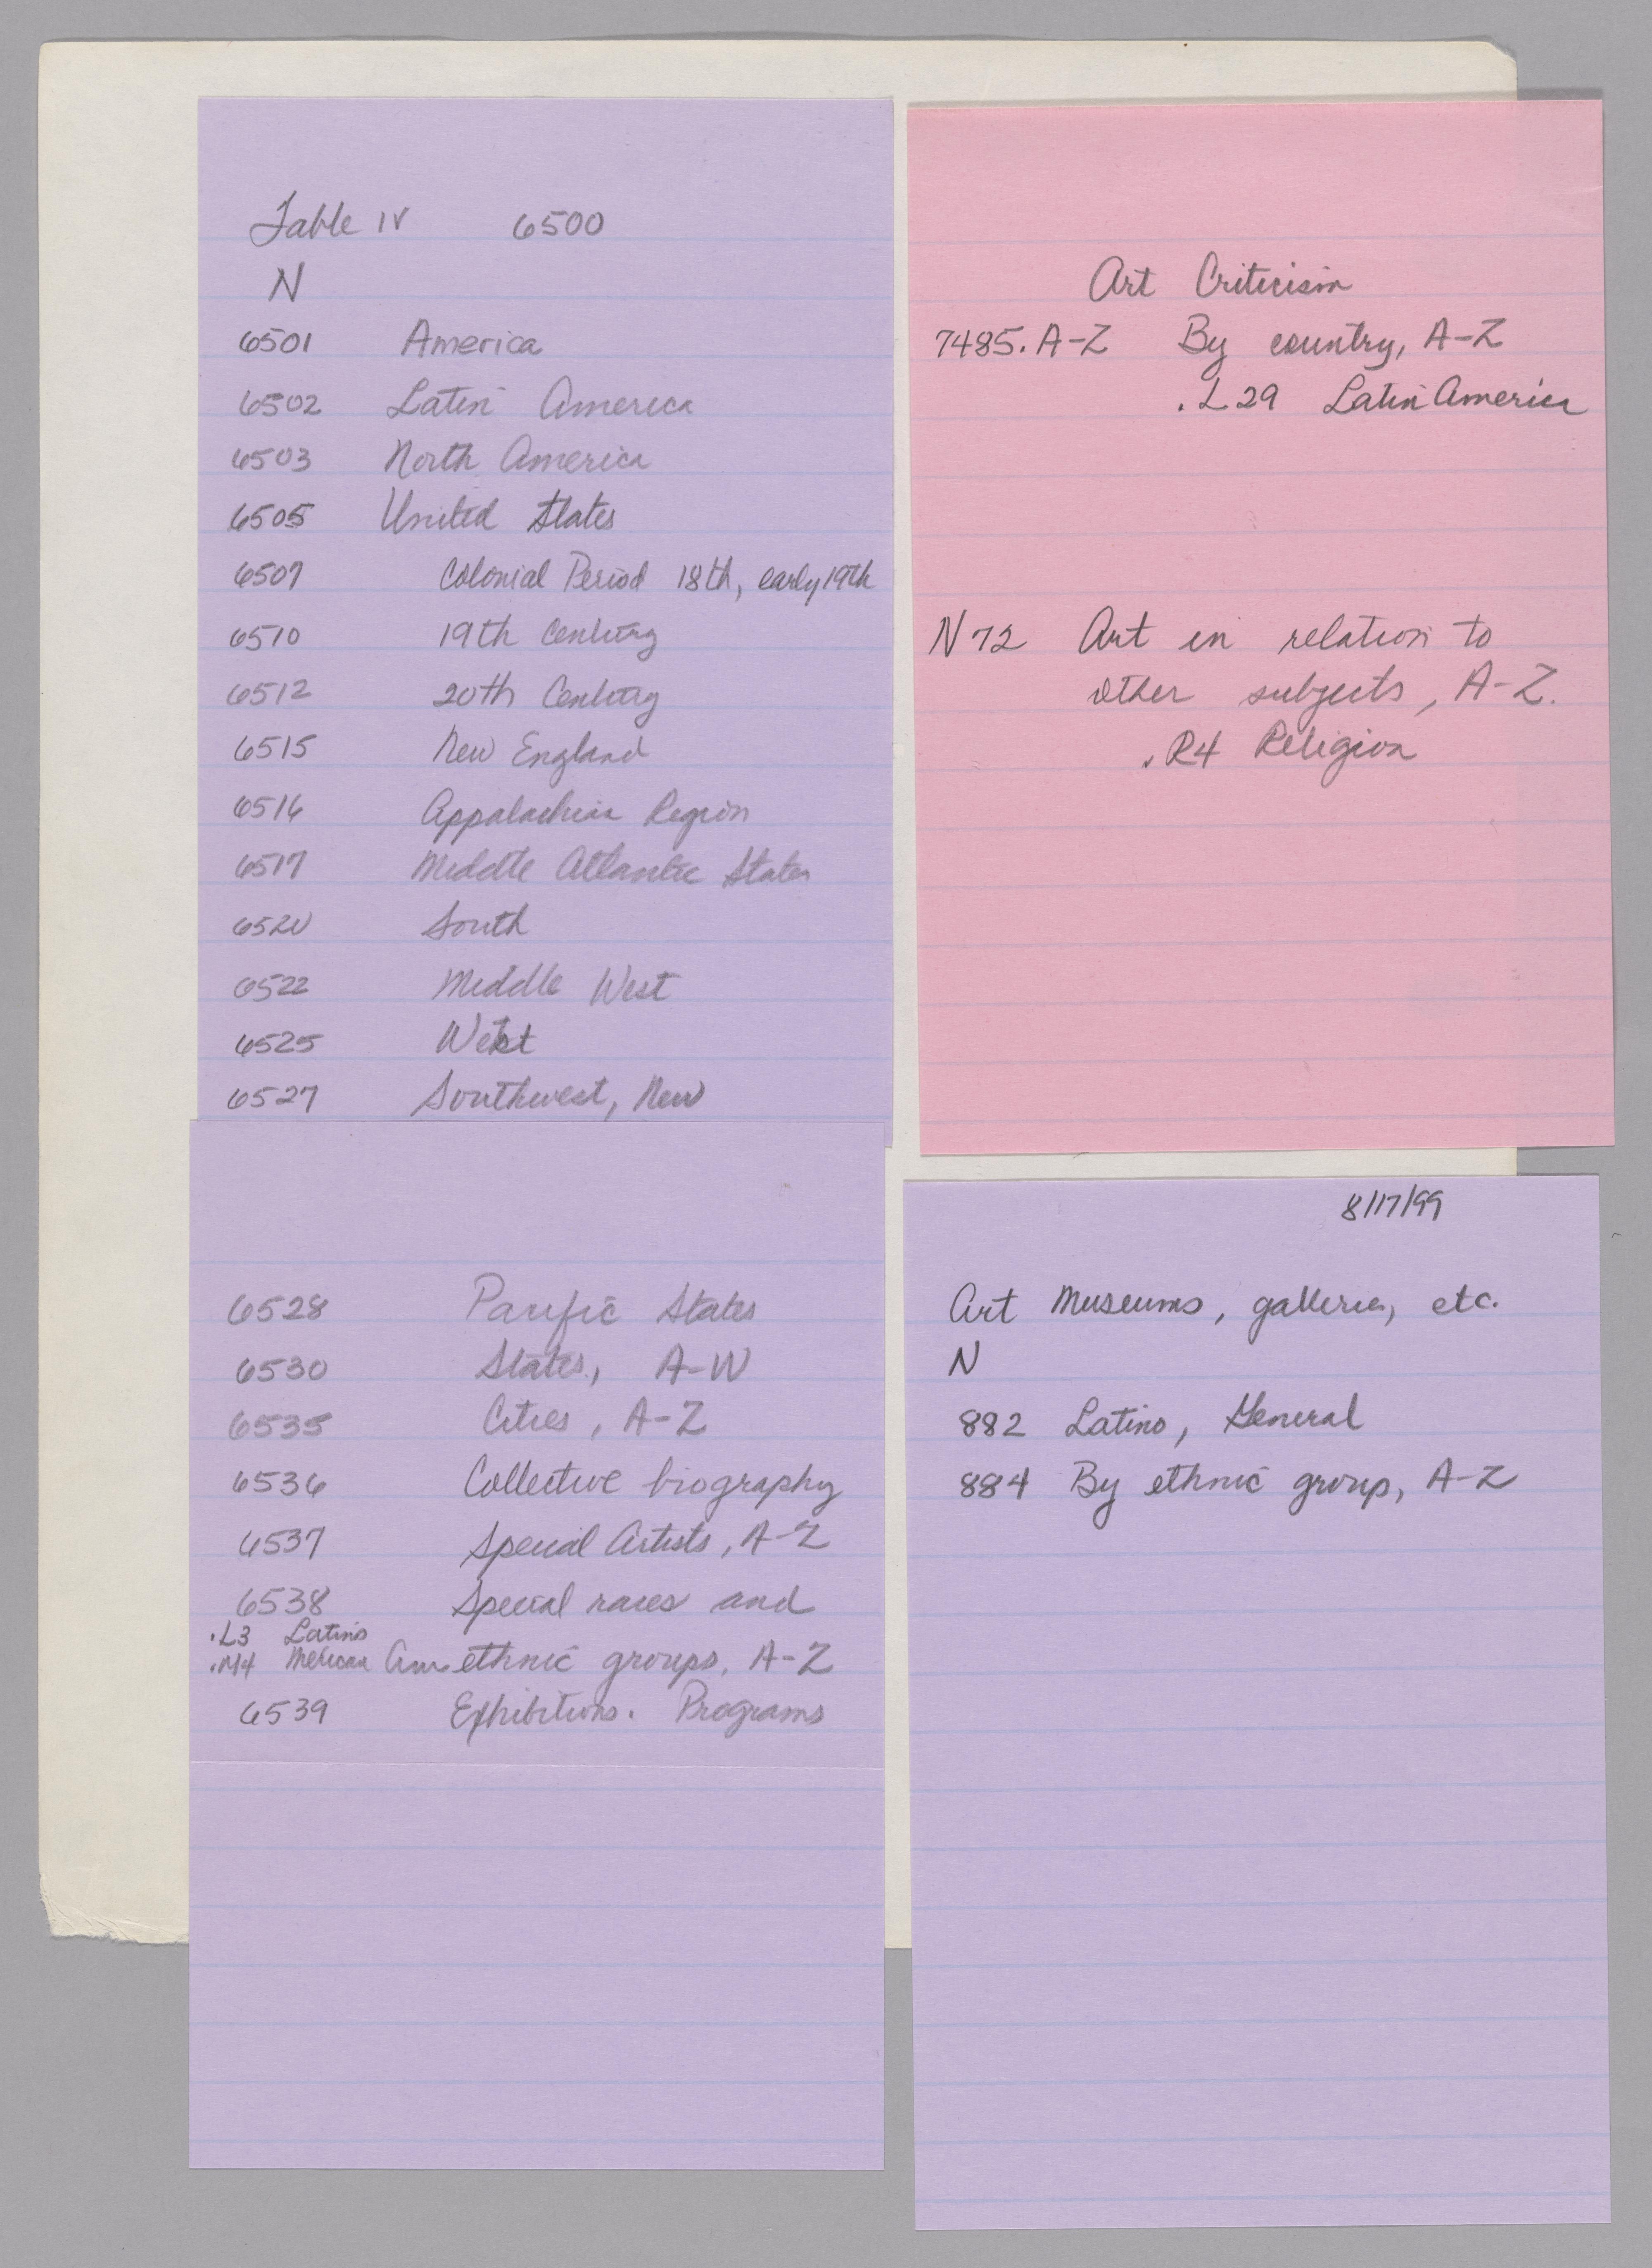 Table IV 6500
N
6501 America
6502 Latin America
6503 North America
6505 United States
6507 Colonial Period 18th, early 19th
6510 19th Century
6512 20th Century
6515 New England
6516 Appalachian Region
6517 Middle Atlantic States
6520 South
6522 Middle West
6525 West
6527 Southwest, New
6528 Pacific States
6530 States, A-W
6535 Cities, A-Z
6536 Collective biography
6537 Special Artists, A-Z
6538 Special races and
.L3 Latino
.M4 Mexican Am. ethnic groups, A-Z
6539 Exhibitions. Programs
Art Criticism
7485.A-Z By country, A-Z
.L29 Latin America
N72 Art in relation to
other subjects, A-Z.
.R4 Religion
8/17/99
Art Museums, galleries, etc.
N
882 Latino, General
884 By ethnic group, A-Z